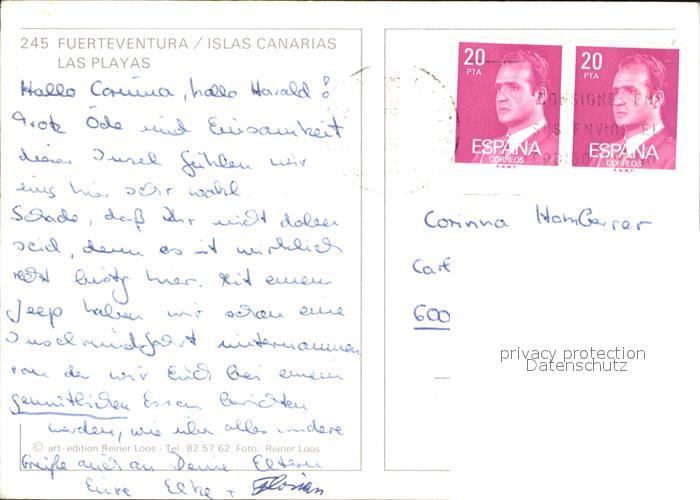 245 FUERTEVENTURA / ISLAS CANARIAS
LAS PLAYAS
Hallo Corinna, hallo Harald!
Trotz Öde und Einsamkeit
dieser Insel fühlen wir
uns hier sehr wohl.
Schade, daß Ihr nicht dabei
seid, denn es ist wirklich
recht lustig hier. Mit einem
Jeep haben wir schon eine
Inselrundfahrt unternommen
von der wir Euch bei einem
gemütlichen Essen berichten
werden, wie über alles andere
© art-edition Reiner Loos - Tel. 82 57 62 Foto: Reiner Loos
Grüße auch an Deine Eltern
Eure Elke + Florian
20
PTA
ESPAÑA
CORREOS
F.N.M.T.
20
PTA
ESPAÑA
CORREOS
F.N.M.T.
CONSIGNE EN
SUS ENVIOS EL
CODIGO
Corinna
Carl
600
privacy protection
Datenschutz